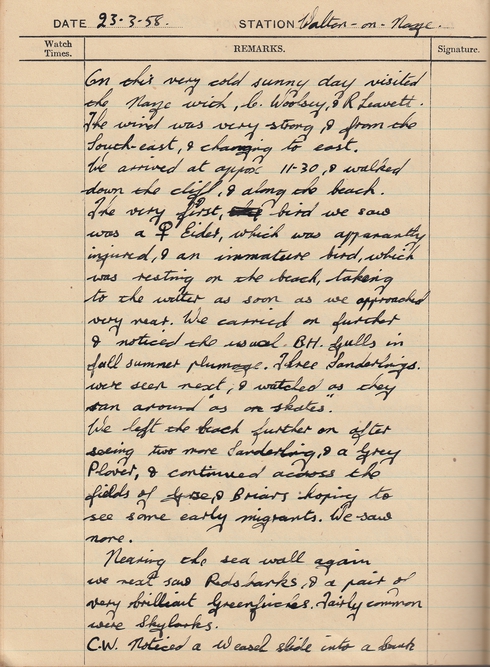 DATE 23-3-58. STATION Walton-on-Naze.
Watch Times. REMARKS. Signature.
On this very cold sunny day visited
the Naze with, C. Woolsey, & R Leavett.
The wind was very strong, & from the
South-east, & changing to east.
We arrived at approx 11-30, & walked
down the cliff, & along the beach.
The very first, bird we saw
was a ♀ Eider, which was apparantly
injured, & an immature bird, which
was resting on the beach, taking
to the water as soon as we approached
very near. We carried on further
& noticed the usual BH. Gulls in
full summer plumage. Three Sanderlings.
were seen next, & watched as they
ran around "as on skates".
We left the beach further on after
seeing two more Sanderling, & a Grey
Plover, & continued across the
fields of Gorse, & Briars hoping to
see some early migrants. We saw
none.
Nearing the sea wall again
we next saw Redshanks, & a pair of
very brilliant Greenfinches. Fairly common
were Skylarks.
C.W. Noticed a Weasel slide into a bank